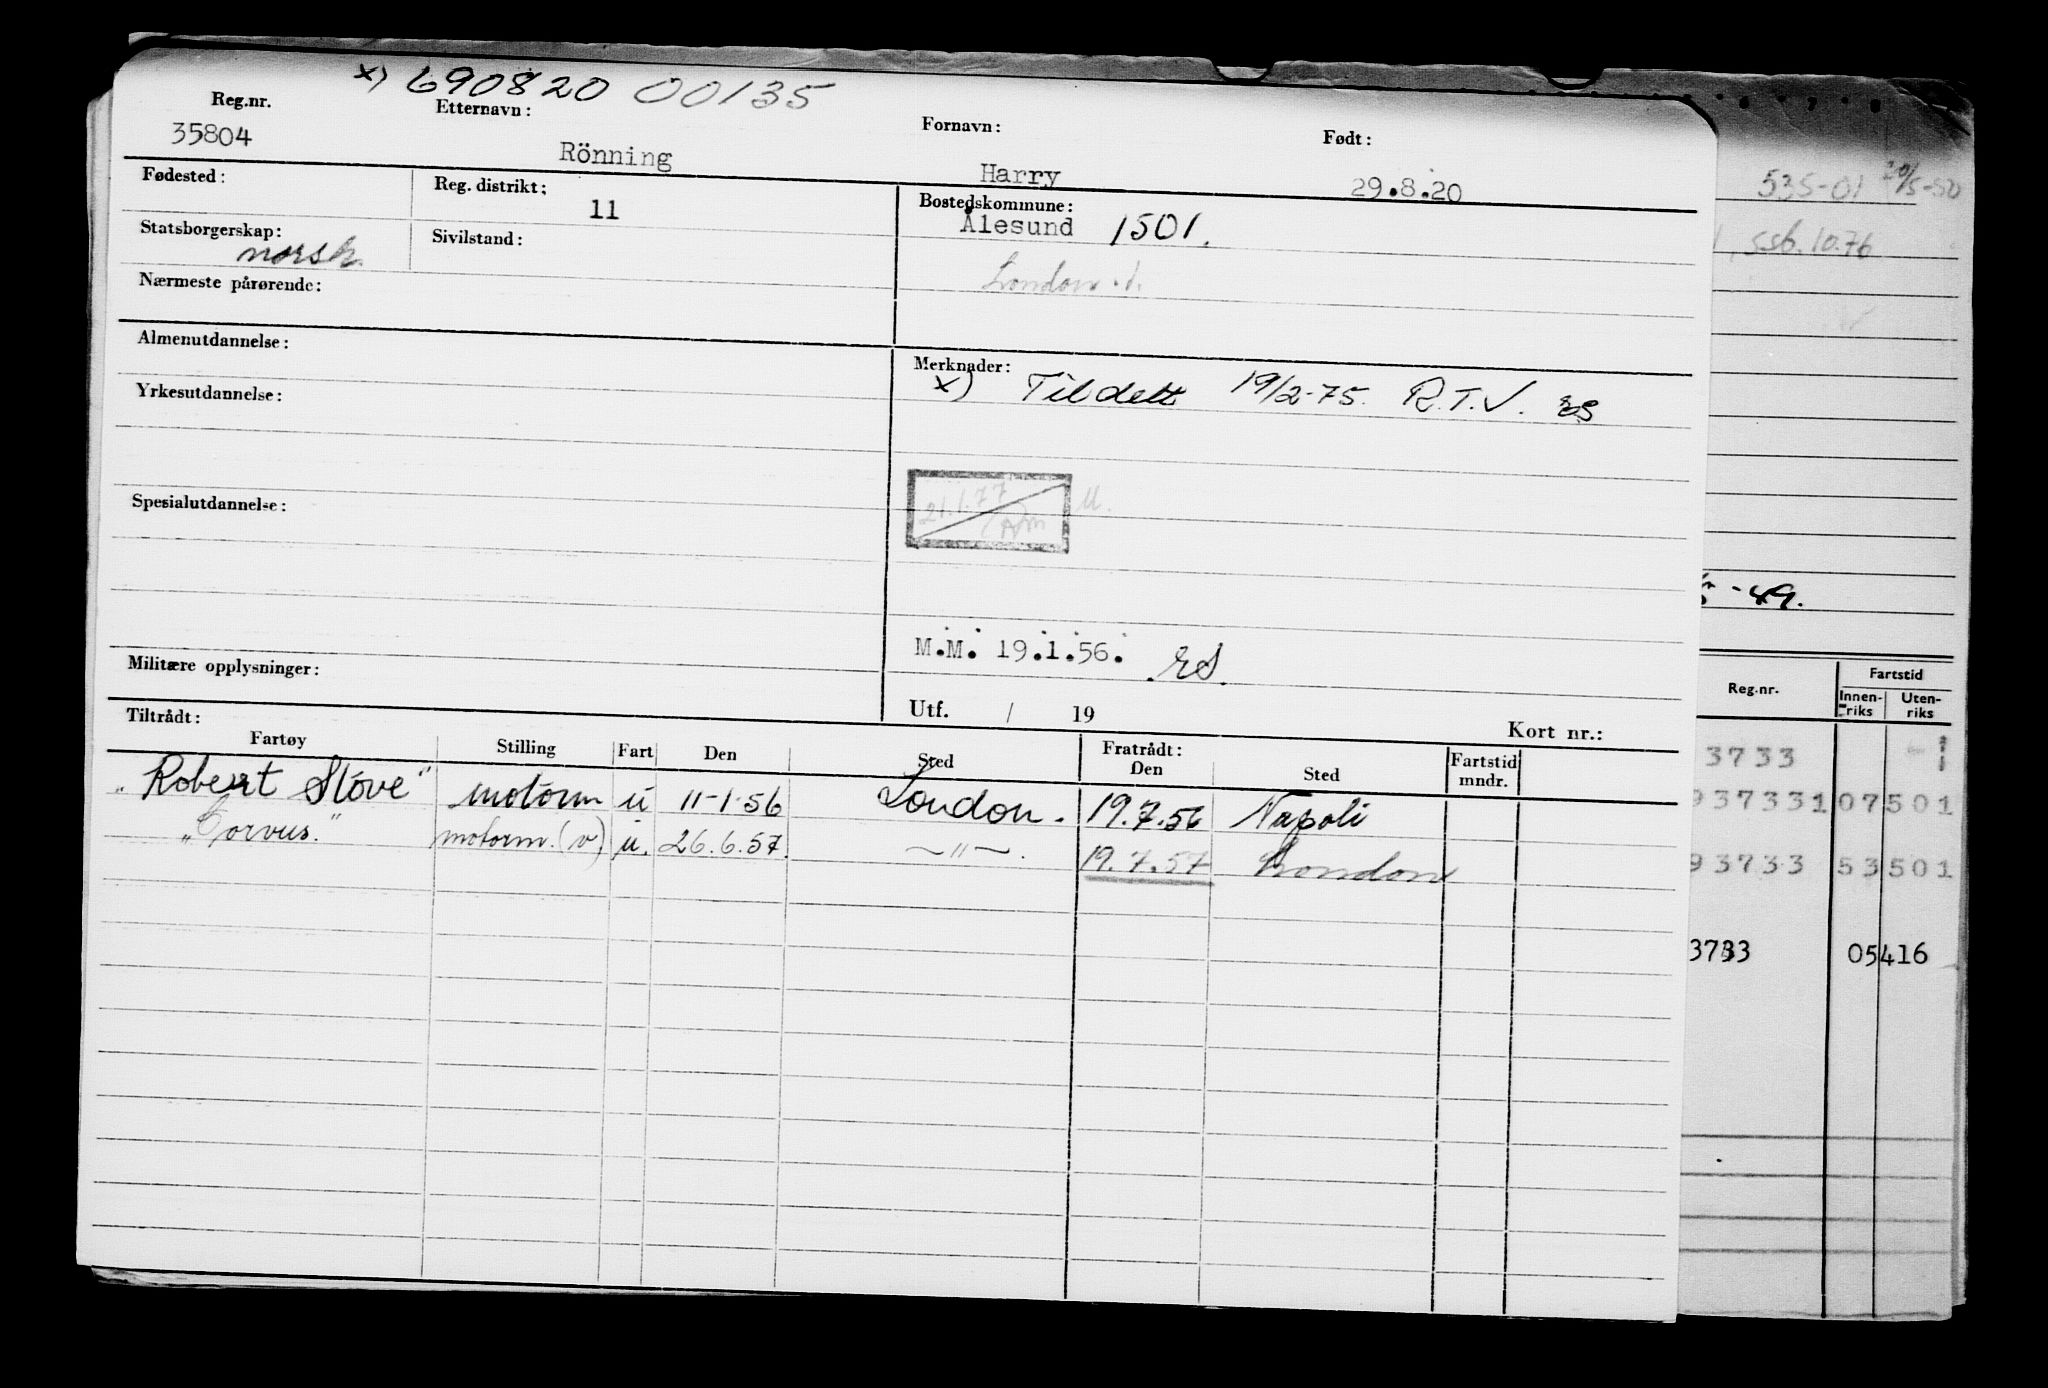 x) 690820 00135
Reg.nr. Etternavn: Fornavn: Født:
35804 Rönning Harry 29.8.20
Fødested: Reg. distrikt: 11 Bostedskommune:
Ålesund 1501.
Statsborgerskap: norsk. Sivilstand:
London
Nærmeste pårørende:
Almenutdannelse: Merknader:
x) Tildelt 19/2-75. R.T.V. ES
Yrkesutdannelse:
21.1.77
Spesialutdannelse:
M.M. 19.1.56. ES.
Militære opplysninger:
Utf. / 19 Kort nr.:
Tiltrådt: Fratrådt:
Fartøy Stilling Fart Den Sted Den Sted Fartstid mndr.
"Robert Stöve" motorm u 11-1-56 London. 19.7.56 Napoli
"Corvus." motorm.(v) u. 26.6.57. —"—. 19.7.57 London
535-01 20/5-50
, ssb. 10.76
-49.
Reg.nr. Fartstid
Innen-riks Uten-riks
3733
9373310 07501
93733 53501
3733 05416